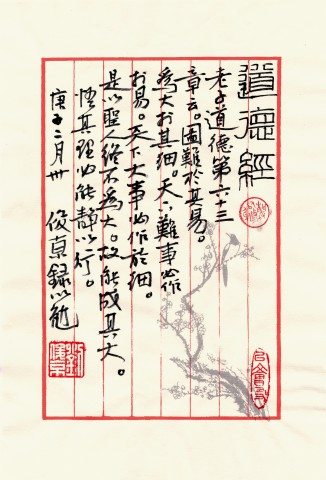 道德經
老子道德第六十三
章云。圖難於其易。
為大於其細。天下難事必作
於易。天下大事必作於細。
是以聖人終不為大。故能成其大。
悟其理必能靜以行。
庚子二月卅 俊京錄以勉